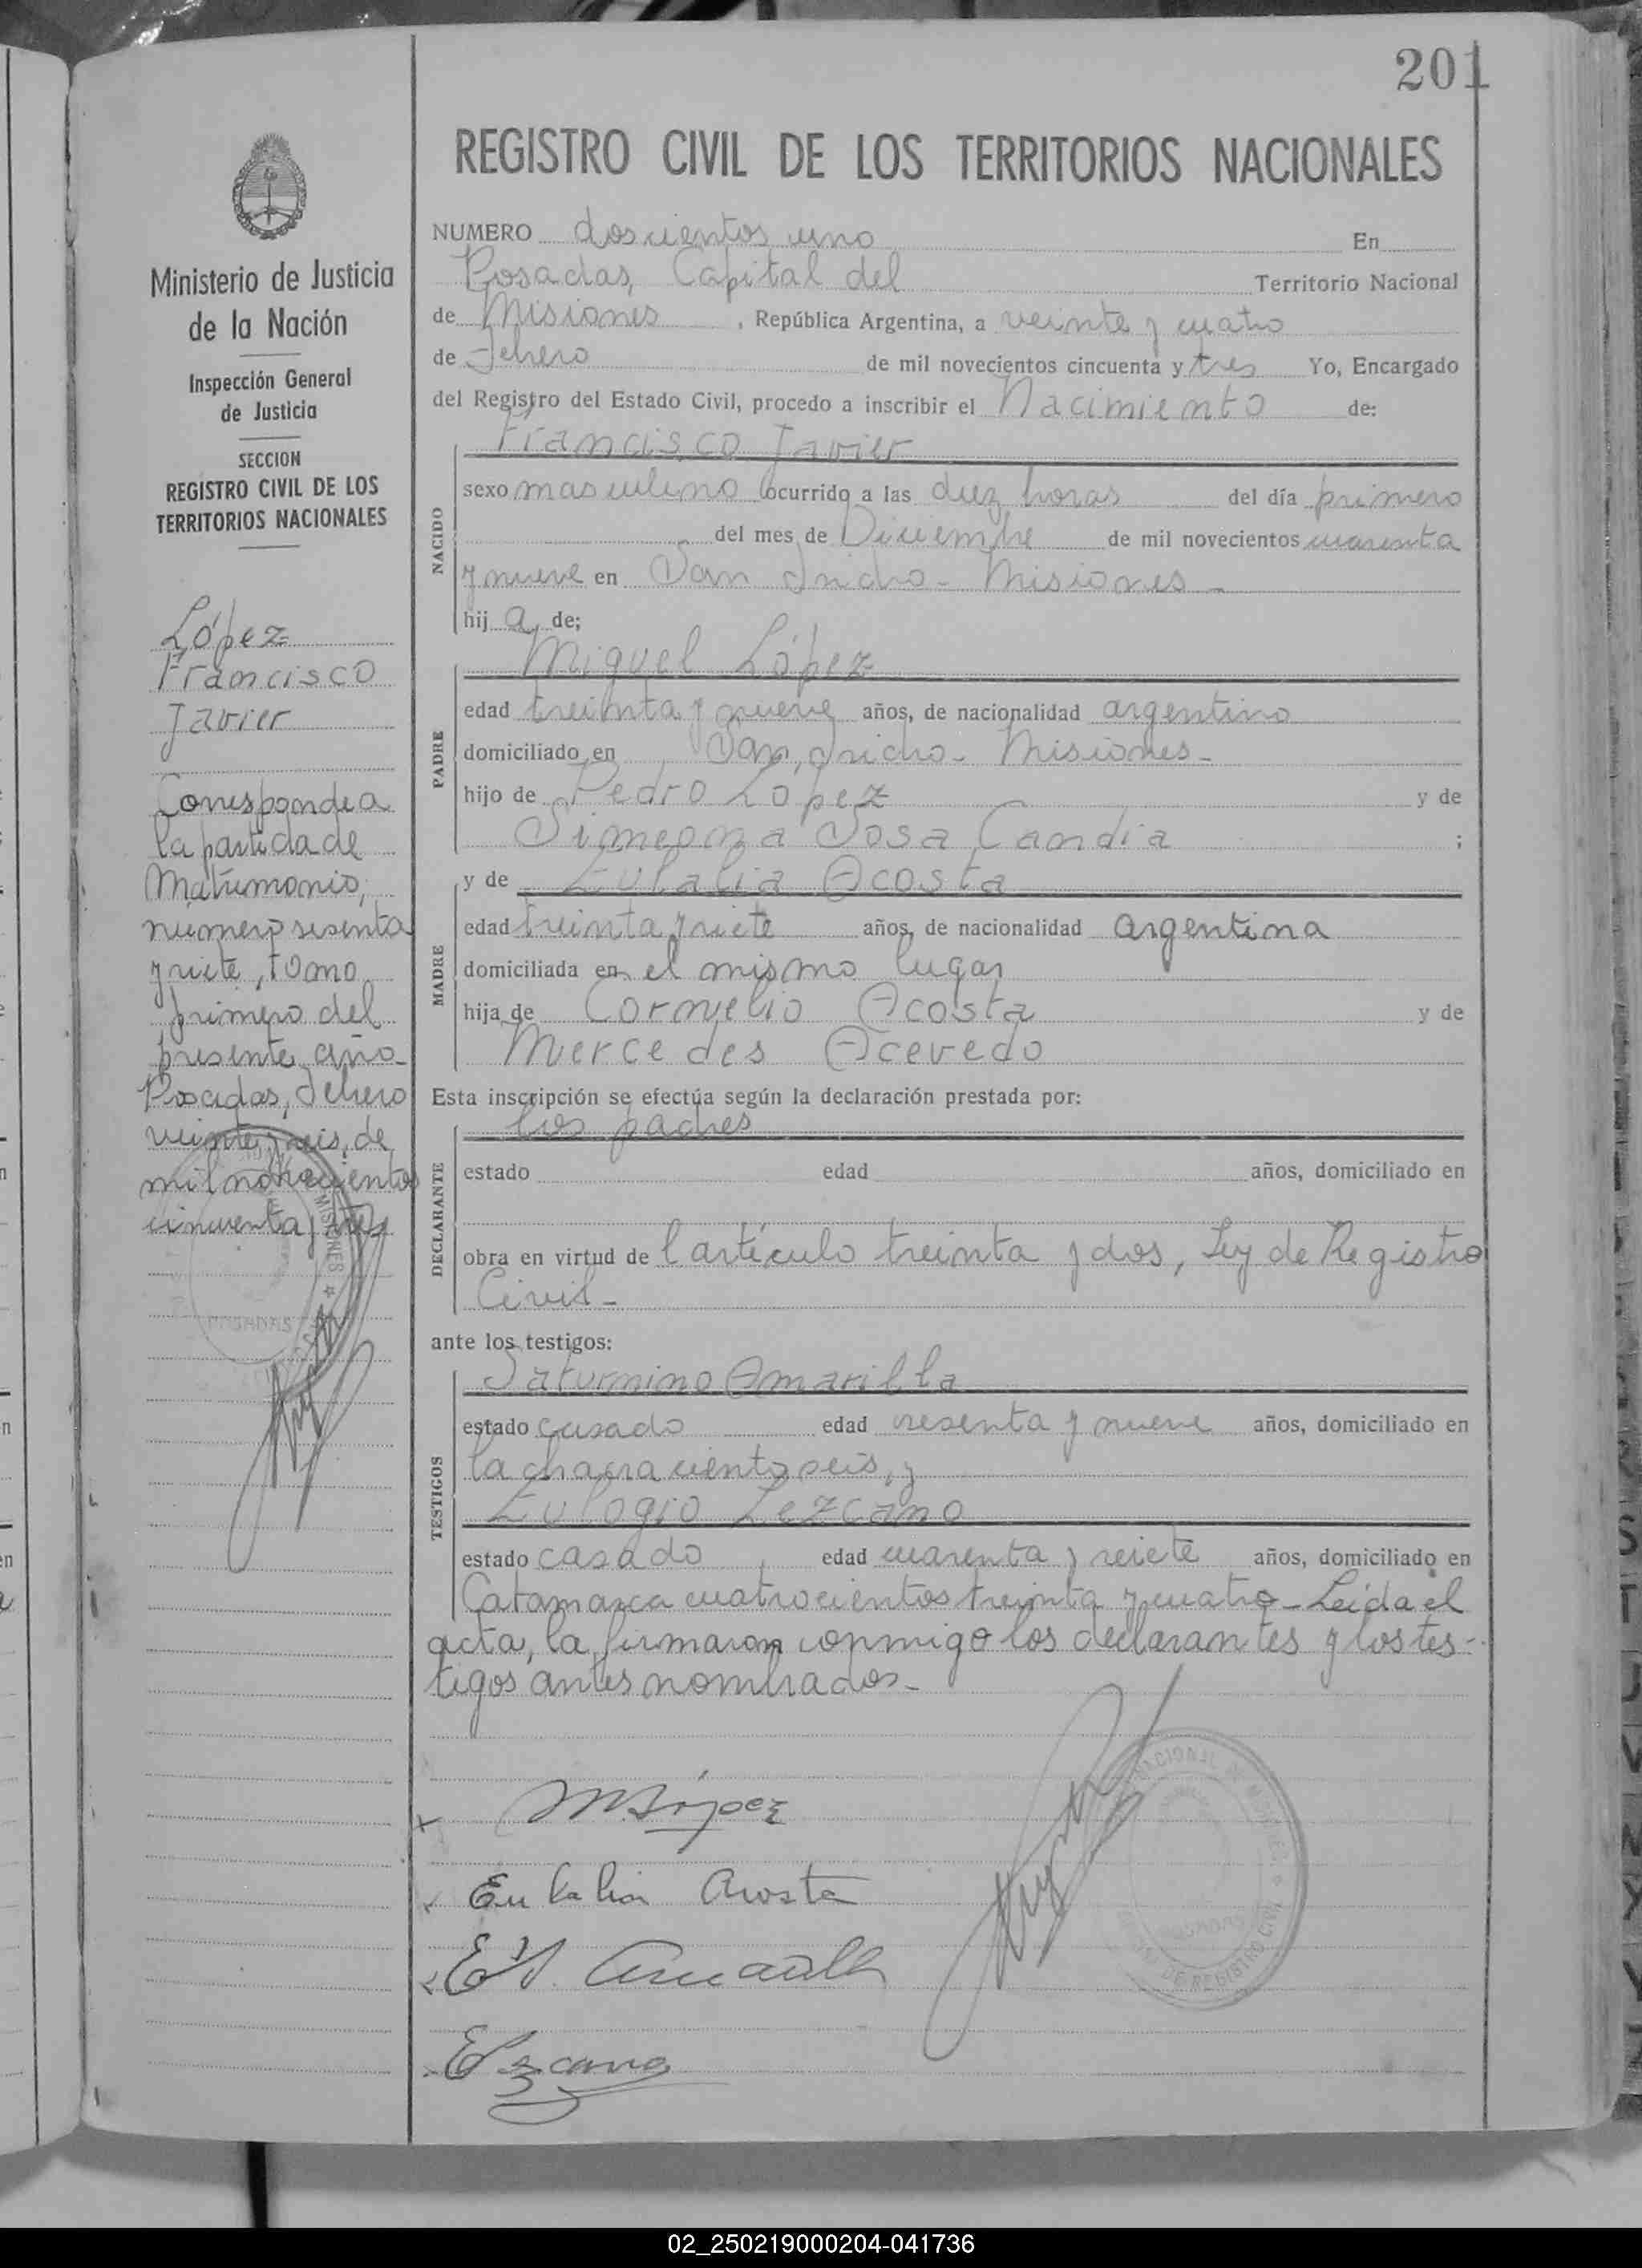 201
REGISTRO CIVIL DE LOS TERRITORIOS NACIONALES
Ministerio de Justicia
de la Nación
Inspección General
de Justicia
SECCION
REGISTRO CIVIL DE LOS
TERRITORIOS NACIONALES
López
Francisco
Javier
Corresponde a
la partida de
Matrimonio,
número sesenta
y siete, tomo
primero del
presente año-
Posadas, Febrero
veinte y seis, de
mil novecientos
cincuenta y tres
MISIONES
POSADAS
NUMERO doscientos uno En
Posadas, Capital del Territorio Nacional
de Misiones, República Argentina, a veinte y cuatro
de Febrero de mil novecientos cincuenta y tres Yo, Encargado
del Registro del Estado Civil, procedo a inscribir el Nacimiento de:
NACIDO
Francisco Javier
sexo masculino ocurrido a las diez horas del día primero
del mes de Diciembre de mil novecientos cuarenta
y nueve en San Isidro - Misiones -
hij a de;
PADRE
Miguel López
edad treinta y nueve años, de nacionalidad argentino
domiciliado en San Isidro - Misiones -
hijo de Pedro López y de
Simeona Sosa Candia ;
MADRE
y de Eulalia Acosta
edad treinta y siete años, de nacionalidad argentina
domiciliada en el mismo lugar
hija de Cornelio Acosta y de
Mercedes Acevedo
Esta inscripción se efectúa según la declaración prestada por:
DECLARANTE
los padres
estado edad años, domiciliado en
obra en virtud de l artículo treinta y dos, Ley de Registro
Civil -
ante los testigos:
TESTIGOS
Saturnino Amarilla
estado casado edad sesenta y nueve años, domiciliado en
la chacra ciento seis, y
Eulogio Lezcano
estado casado, edad cuarenta y seiete años, domiciliado en
Catamarca cuatrocientos treinta y cuatro - Leída el
acta, la firmaron conmigo los declarantes y los tes-
tigos antes nombrados -
M. López
Eulalia Acosta
Amarilla
E Lezcano
NACIONAL DE MISIONES
POSADAS
DE REGISTRO CIVIL
02_250219000204-041736